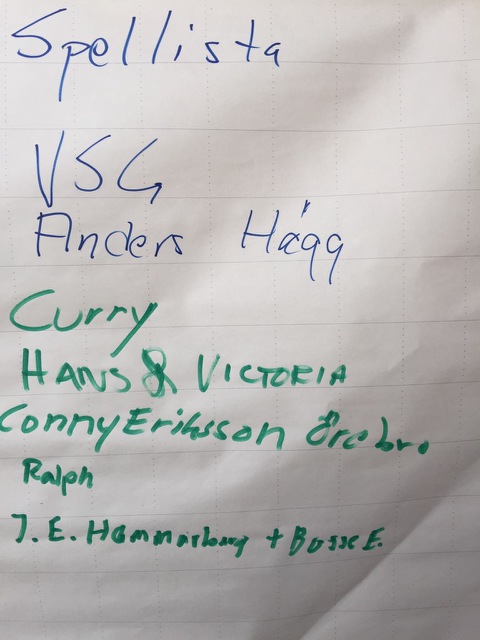 Spellista
VSG
Anders Hägg
Curry
HANS & VICTORIA
Conny Eriksson Örebro.
Ralph
J. E. Hammarberg + Bosse E.